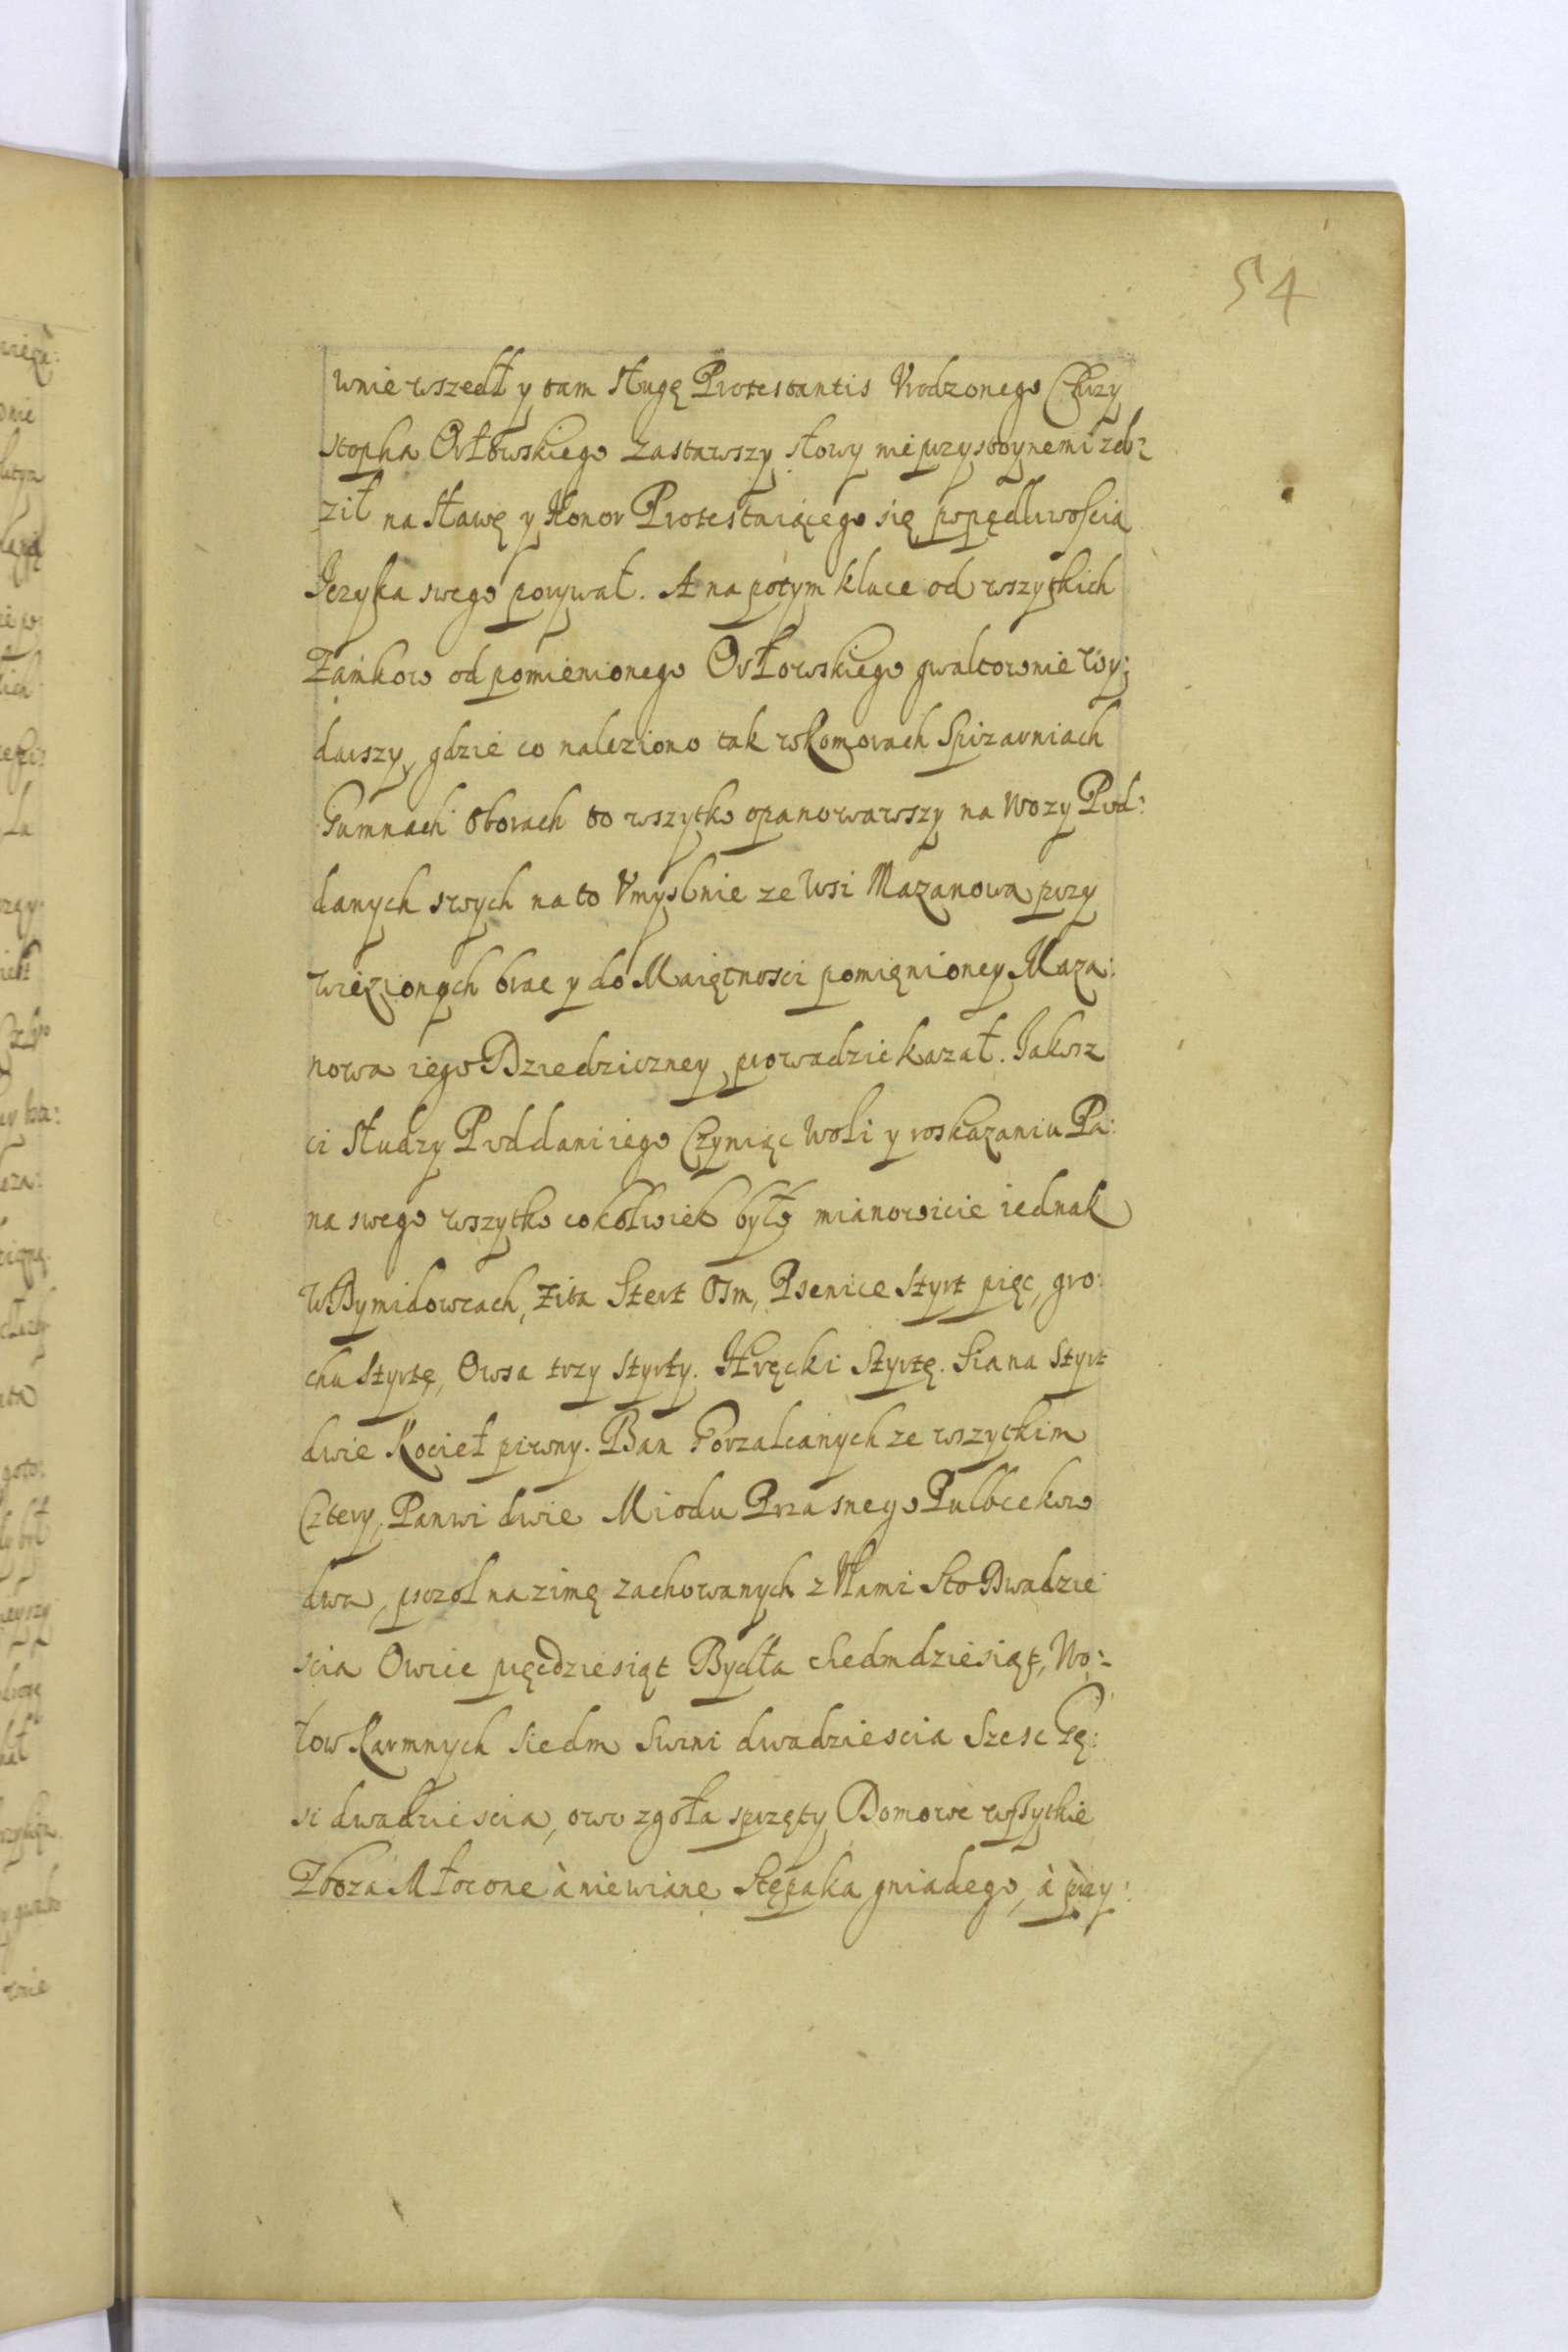 54
wnie wszedł y tam sługę Protestantis Vrodzonego Chrzy
stopha Orłowskiego zastawszy słowy nieprzystoynemi zel:
ził na sławę y Honor Protestuiącego się popędliwoscią
Ięzyka swego porywał. A na potym kluce od wszytkich
Zamkow od pomienionego Orłowskiego gwałtownie wy:
darszy, gdzie co naleziono tak w Komorach Spizarniach
Gumnach Oborach to wszytko opanowawszy na Wozy Pod:
danych swych na to Vmyslnie ze Wsi Mazanowa przy
wiezionych brac y do Maiętnosci pomięnioney Maza:
nowa iego Dziedziczney prowadzic kazał. Iakosz
ci słudzy Poddani iego Czyniąc Woli y roskazaniu Pa:
na swego wszytko cokolwiek było mianowicie iednak
W Dymidowcach, Zita Stert Osm, Psenice Styrt pięc, gro:
chu Styrtę, Owsa trzy Styrty. Hręcki Styrtę. Siana Styrt
dwie Kocieł piwny. Ban Gorzalcanych ze wszytkim
Cztery, Panwi dwie Miodu Przasnego Pulbcekow
dwa, psczoł na zimę zachowanych z Vlami Sto Dwadzie
scia Owiec pięcdziesiąt Bydła siedmdziesiąt, Wo:
łow Karmnych Siedm Swini dwadziescia Szesc Gę:
si dwadziescia, owo zgoła sprzęty Domowe wszytkie
Zboza Młocone à niewiane Stępaka gniadego, à przy: